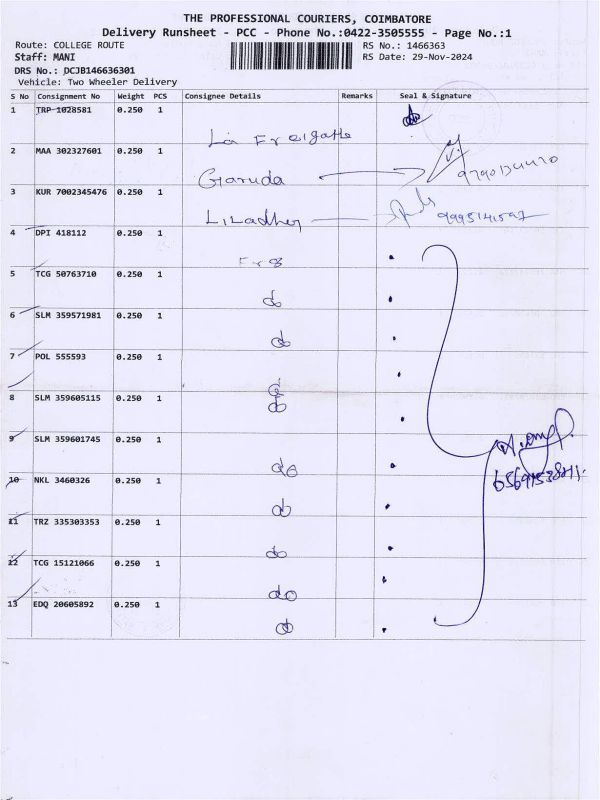 THE PROFESSIONAL COURIERS, COIMBATORE
Delivery Runsheet - PCC - Phone No.:0422-3505555 - Page No.:1
Route: COLLEGE ROUTE
RS No.: 1466363
Staff: MANI
RS Date: 29-Nov-2024
DRS No.: DCJB146636301
Vehicle: Two Wheeler Delivery
S No Consignment No Weight PCS Consignee Details Remarks Seal & Signature
1 TRP 1028581 0.250 1
2 MAA 302327601 0.250 1
Garuda
3 KUR 7002345476 0.250 1
Liladher
4 DPI 418112 0.250 1
5 TCG 50763710 0.250 1
do
6 SLM 359571981 0.250 1
do
7 POL 555593 0.250 1
do
8 SLM 359605115 0.250 1
9 SLM 359601745 0.250 1
do
10 NKL 3460326 0.250 1
do
11 TRZ 335303353 0.250 1
do
12 TCG 15121066 0.250 1
do
13 EDQ 20605892 0.250 1
do